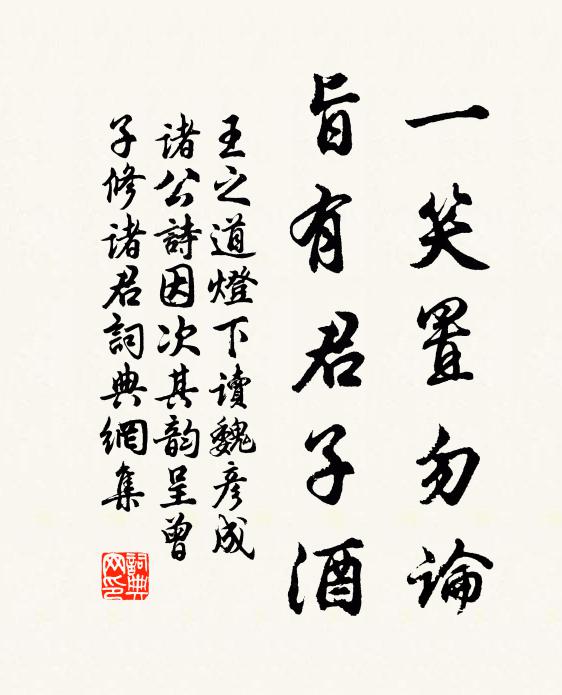 一笑置勿論
旨有君子酒
王之道燈下讀魏彥成
諸公詩因次其韵呈曾
子修諸君詞典網集
詞典網印